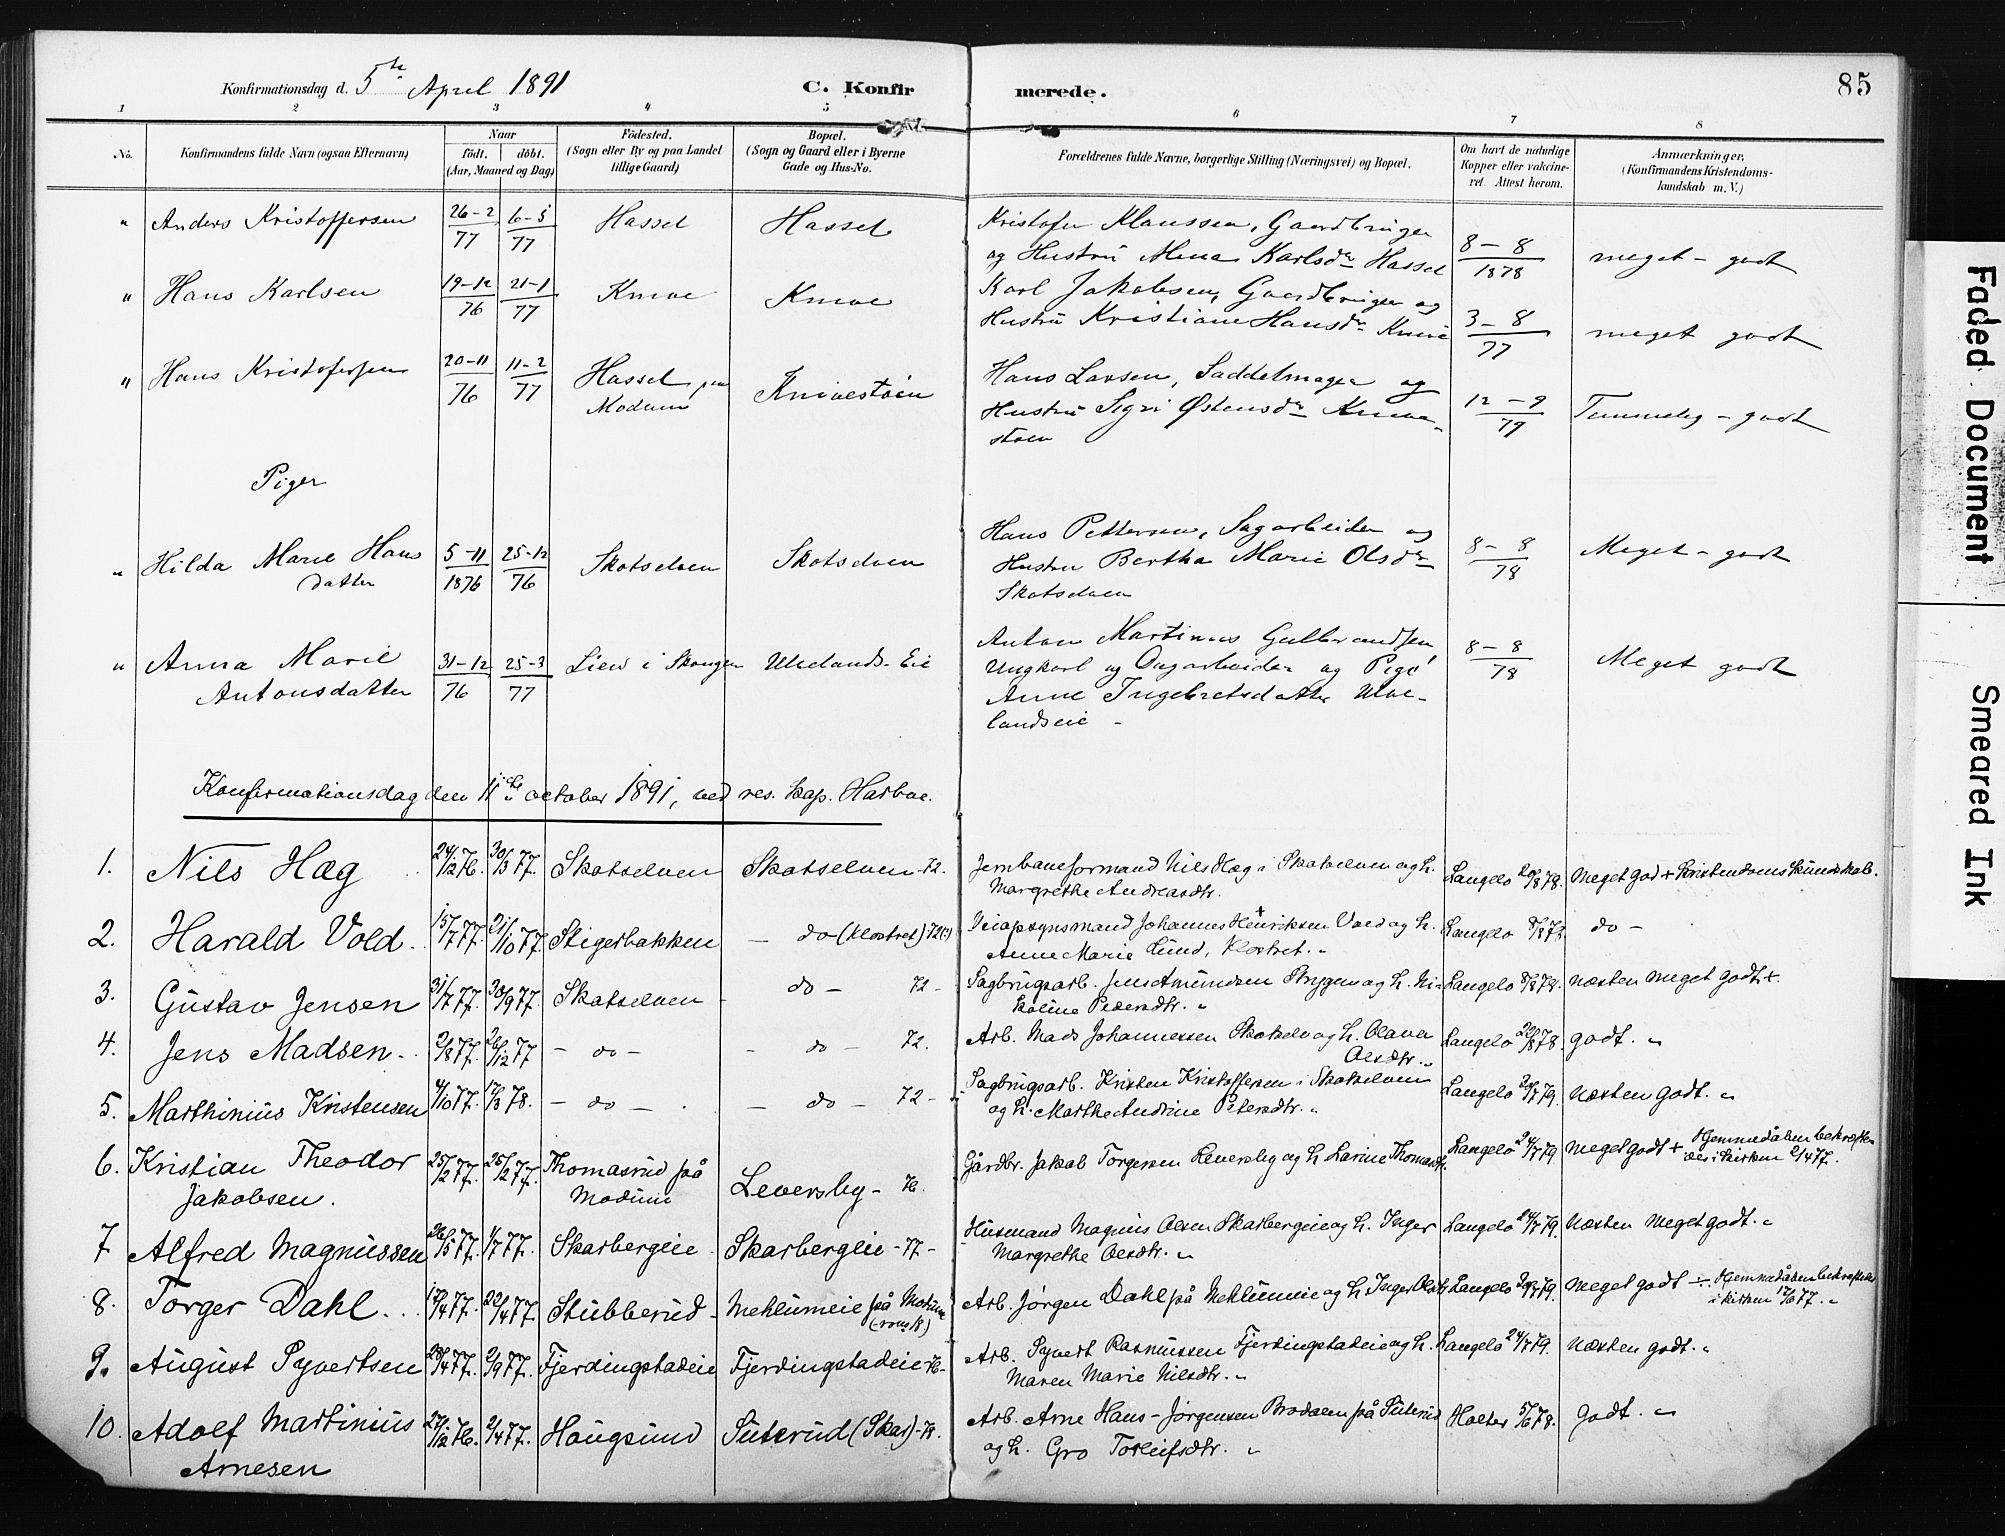 Konfirmationsdag d. 5te April 1891 C. Konfirmerede. 85
1 2 3 4 5 6 7 8
No. Konfirmandens fulde Navn (ogsaa Efternavn) Naar födt. döbt. (Aar, Maaned og Dag) Födested. (Sogn eller By og paa Landet tillige Gaard) Bopæl. (Sogn og Gaard eller i Byerne Gade og Hus-No. Forældrenes fulde Navne, borgerlige Stilling (Næringsvei) og Bopæl. Om havt de naturlige Kopper eller vakcineret. Attest herom. Anmærkninger. (Konfirmandens Kristendomskundskab m. V.)
" Anders Kristoffersen 26-2/77 6-5/77 Hassel Hassel Kristofer Klaussen, Gaardbruger
og Hustru Mena Karlsdr Hassel 8-8/1878 meget - godt
" Hans Karlsen 19-12/76 21-1/77 Knive Knive Karl Jakobsen, Gaardbruger og
Hustru Kristiane Hansdr Knive 3-8/77 meget godt
" Hans Kristofersen 20-11/76 11-2/77 Hassel paa Modum Knivestøen Hans Larsen, Saddelmager og
Hustru Sigri Østensdr Knive-
støen 12-9/79 Temmelig - godt
Piger
" Hilda Marie Hans
datter 5-11/1876 25-12/76 Skotselven Skotselven Hans Pettersen, Sagarbeider og
Hustru Bertha Marie Olsdr
Skotselven 8-8/78 Meget - godt
" Anna Marie
Antonsdatter 31-12/76 25-3/77 Lien i Skougen Ulvelands-Eie Anton Martinus Gulbrandsen
Ungkarl og Dagarbeider og Pige
Anne Ingebretsdatter Ulve-
landseie - 8-8/78 Meget godt
Konfirmationsdag den 11te october 1891, ved res. kap. Harboe.
1. Nils Hæg 24/12 76. 30/3 77. Skotselven Skotselven - 72. Jernbaneformand Nils Hæg i Skotselven og h.
Margrethe Andreasdtr. Langelo 20/8 78. Meget god + Kristendomskundskab.
2. Harald Vold. 15/7 77. 21/10 77. Stigerbakken - do (Klostret) 72 Veiopsynsmand Johannes Henriksen Vold og h.
Anne Marie Lund, Klostret. " Langelo 8/8 78 do -
3. Gustav Jensen 31/7 77. 30/9 77. Skotselven - do - 72 - Sagbrugsarb. Jens Amundsen Strygen og h. Ni-
koline Pedersdtr. " Langelo 8/8 78. Næsten meget godt +
4. Jens Madsen. 2/8 77. 26/12 77 - do - - do - 72. Arb. Mads Johannessen Skotselv og h. Olava
Olsdtr. " Langelo 20/8 78. godt. "
5. Marthinius Kristensen 4/10 77. 17/3 78. - do - . - do - 72 - Sagbrugsarb. Kristen Kristoffersen i Skotselven
og h. Marthe Andrine Petersdtr. " Langelo 24/7 79. Næsten godt. "
6. Kristian Theodor
Jakobsen. 25/2 77. 25/2 77. Thomasrud på
Modum Leversby - 76. Gårdbr. Jakob Torgersen Leversby og h Larine Thomasdtr. Langelo 24/7 79 Meget godt + Hjemmedåben bekræfte-
des i kirken 2/4 77.
7 Alfred Magnussen 26/5 77. 1/7 77. Skarbergeie Skarbergeie - 77 - Husmand Magnus Olsen Skarbergeie og h. Inger
Margrethe Olsdtr. " Langelo 24/7 79. Næsten meget godt. "
8. Torger Dahl. . . 17/4 77. 22/4 77. Stubberud - Mehlumeie på Modum Arb. Jørgen Dahl på Mehlumeie og h Inger Olsdtr. Langelo 24/7 79. Meget godt ÷ Hjemmedåben bekræftedes
i kirken 17/6 77. "
9. August Syvertsen 28/4 77. 2/9 77. Fjerdingstadeie Fjerdingstadeie 76- Arb. Syvert Rasmussen Fjerdingstadeie og h.
Maren Marie Nilsdtr. " Langelo 24/7 79. Næsten godt. "
10. Adolf Martinius
Arnesen 27/12 76. 2/4 77. Hougsund Suterud (Skar) - 78. Arb. Arne Hans-Jørgensen Brodalen på Suterud
og h. Gro Torleifsdtr. " Holter 5/6 78. Godt. "
Faded Document
Smeared Ink